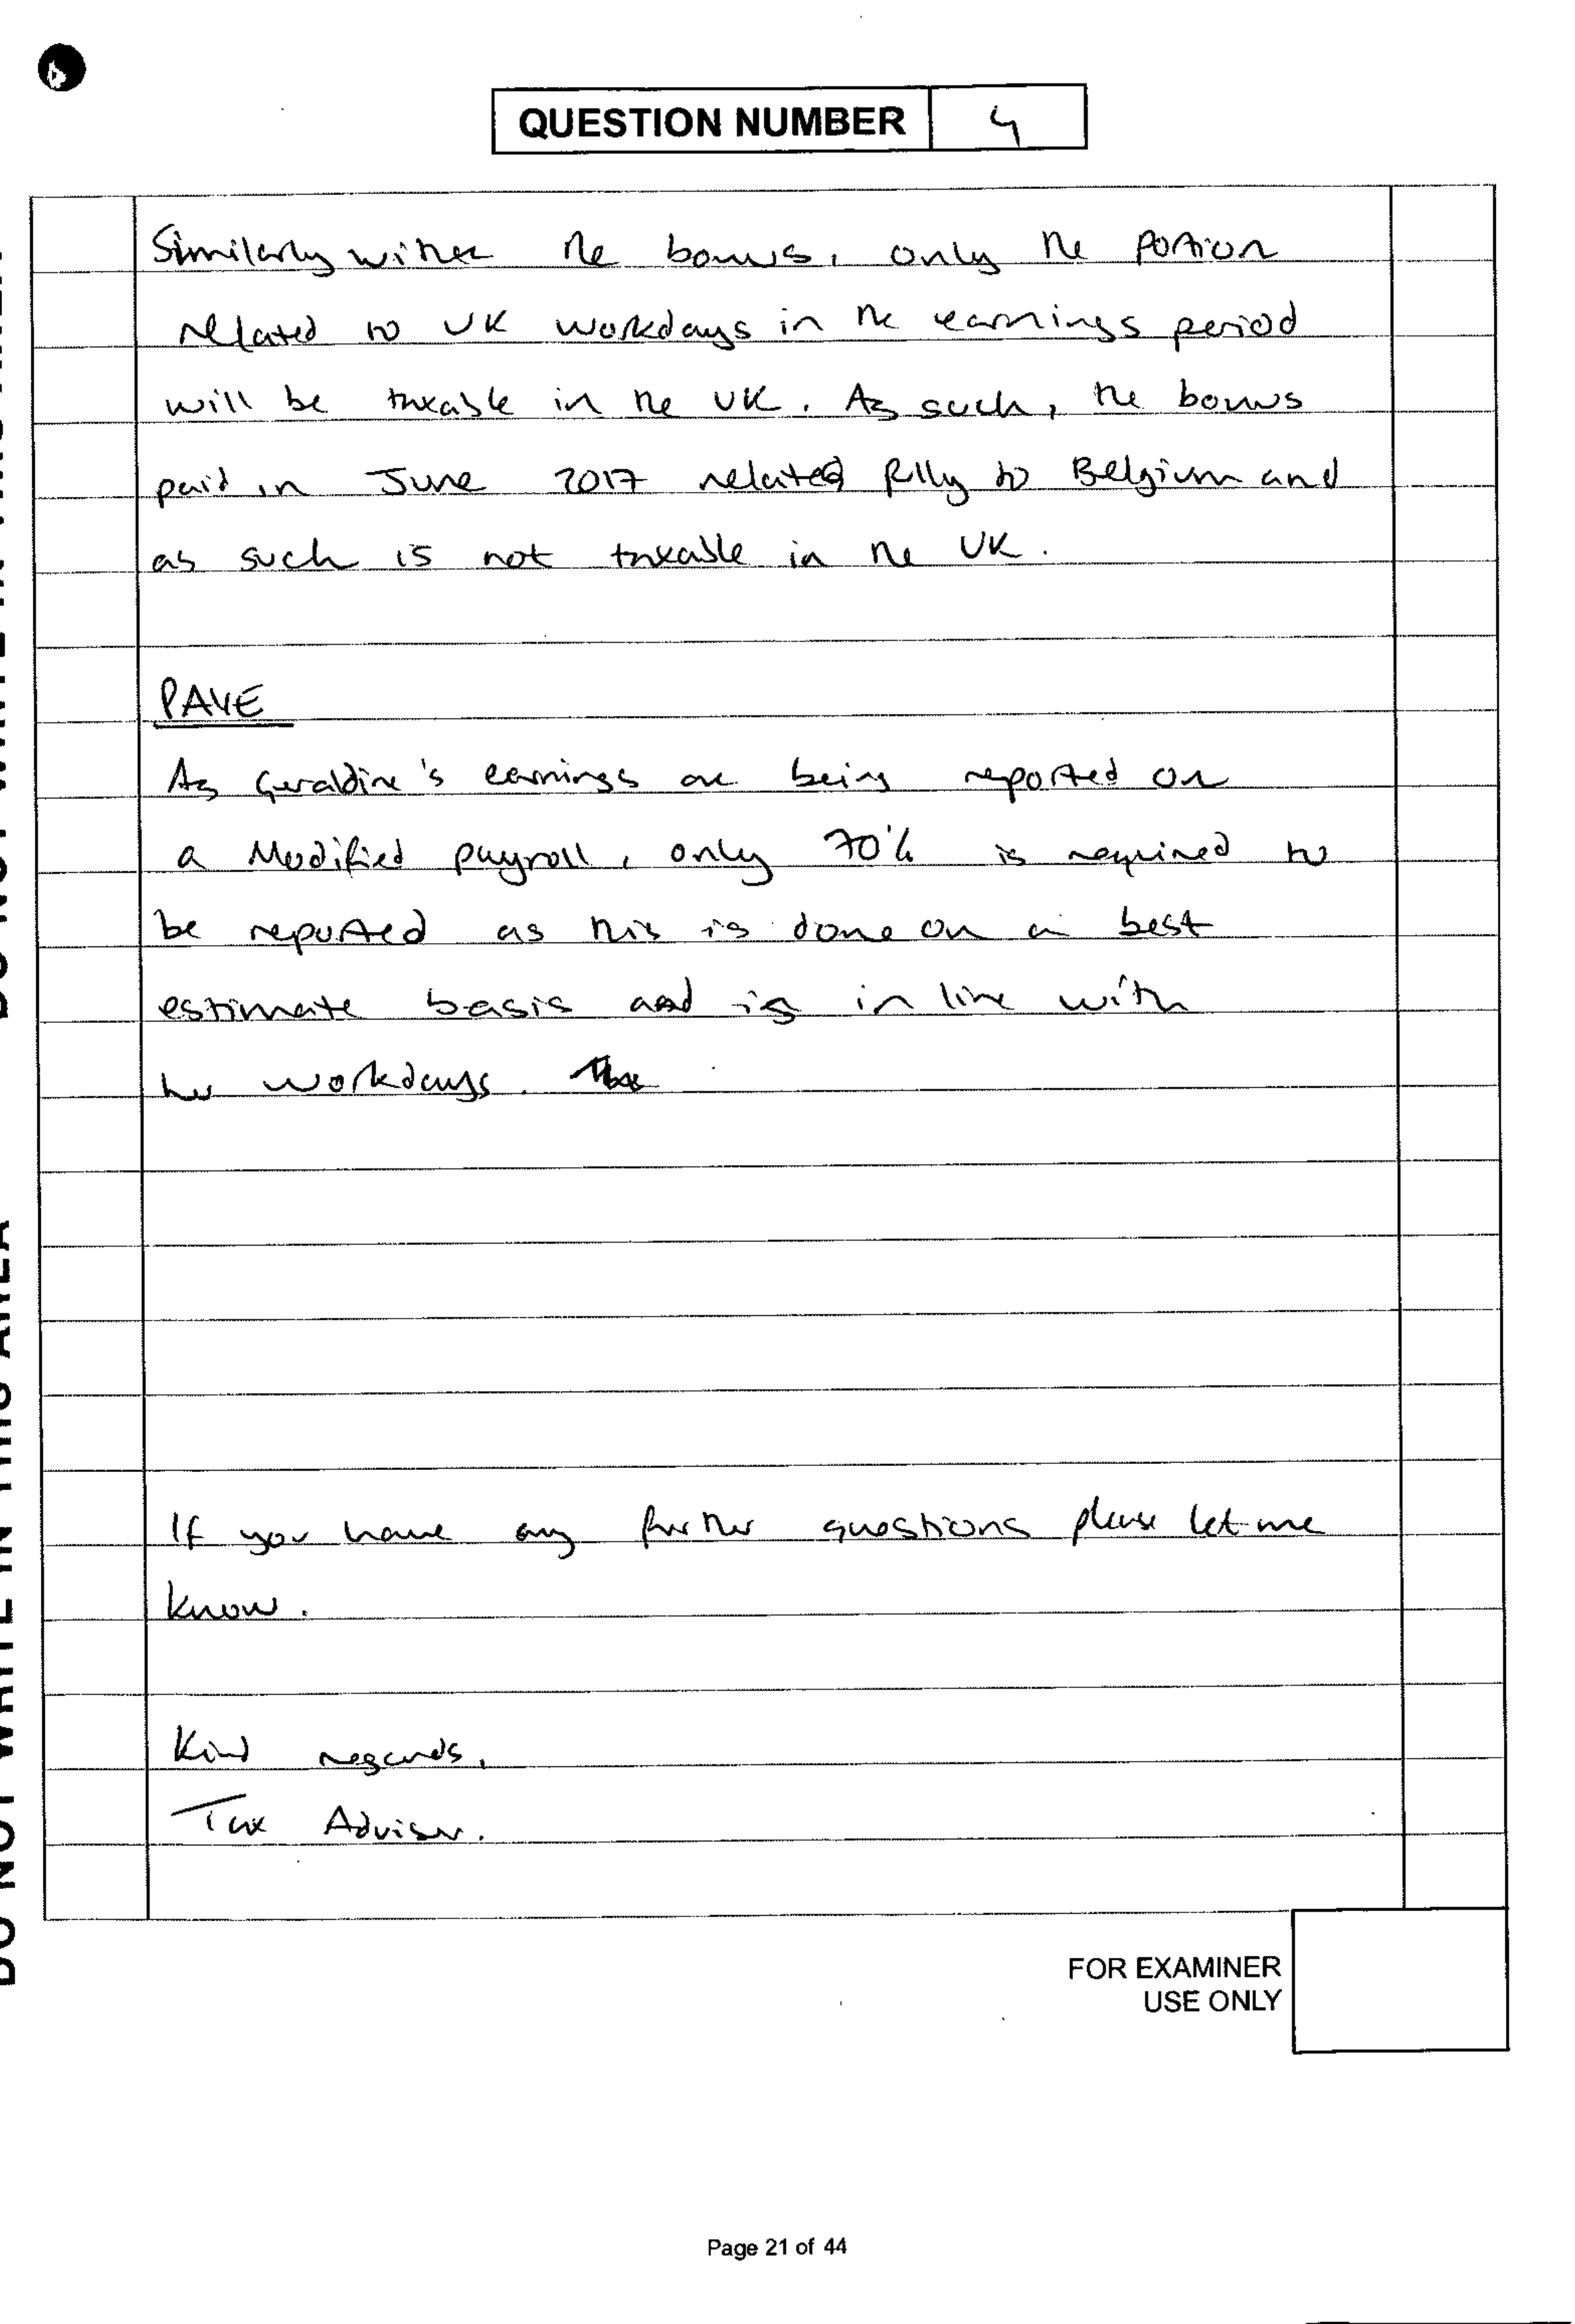 QUESTION NUMBER 4
Similarly with the bonus, only the portion
related to UK workdays in the earnings period
will be taxable in the UK. As such, the bonus
paid in June 2017 related fully to Belgium and
as such is not taxable in the UK.
PAYE
As Geraldine's earnings are being reported on
a Modified payroll, only 70% is required to
be reported as this is done on a best
estimate basis and is in line with
her workdays.
If you have any further questions please let me
know.
Kind regards,
Tax Adviser.
FOR EXAMINER
USE ONLY
Page 21 of 44